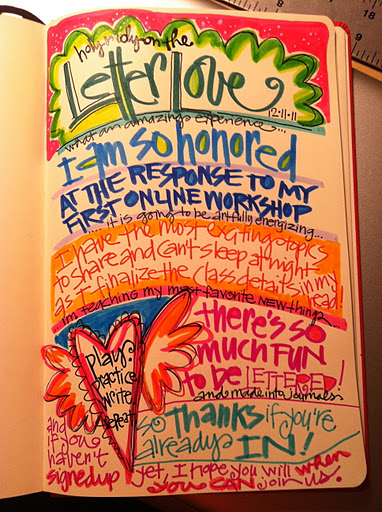 holy moly on the
Letter Love
12.11.11
what an amazing experience...
I am so honored
AT THE RESPONSE TO MY
FIRST ONLINE WORKSHOP
.... it is going to be artfully energizing...
I have the most exciting topics
to share and can't sleep at night
as I finalize the class details in my
head!
... im teaching my most favorite NEW things...
there's so
much FUN
to be LETTERED!
and made into journals
play.
practice
write
repeat
so THANKS if you're
already IN!
and
if you
haven't
signed up
yet, I hope you will when
you CAN join us!